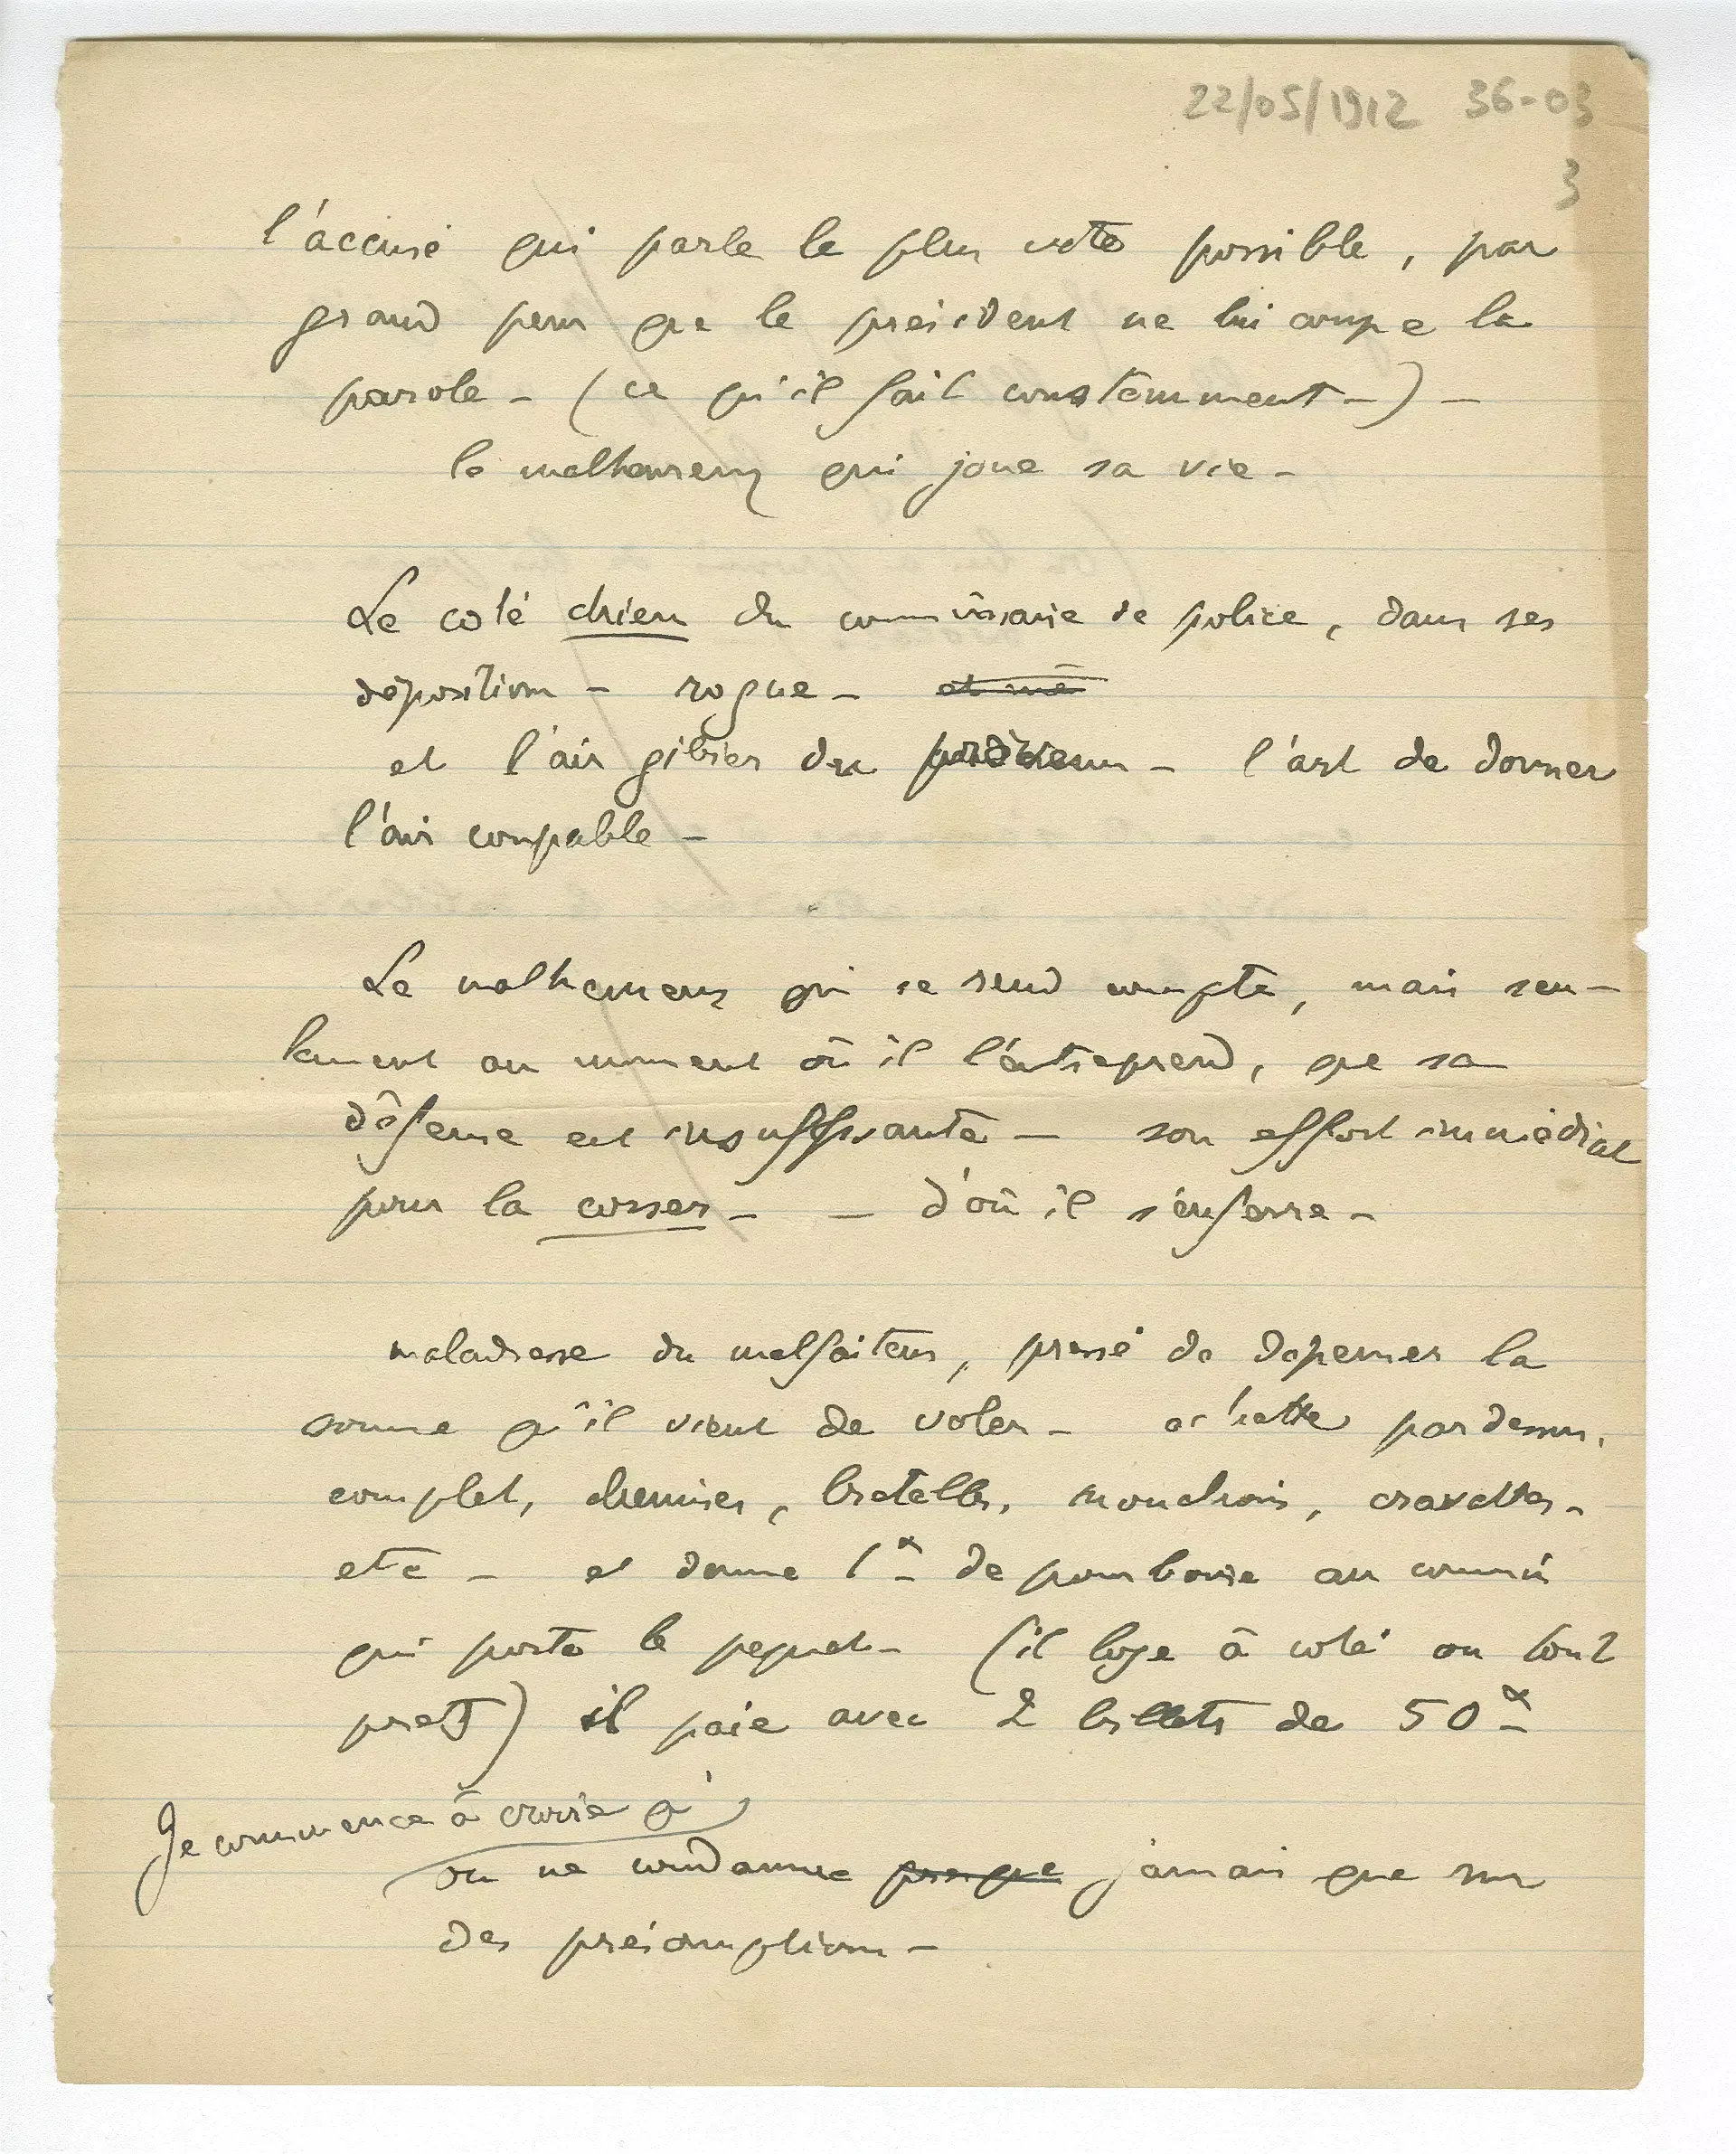 22/05/1912 36-03
3
l'accusé qui parle le plus vite possible, par
grand peur que le président ne lui coupe la
parole - (ce qu'il fait constamment -) -
le malheureux qui joue sa vie -
Le coté chien du commissaire de police, dans ses
dépositions - rogue - et me
et l'air gibier du - l'art de donner
l'air coupable -
Le malheureux qui se rend compte, mais seu-
lement au moment où il l'entreprend, que sa
défense est insuffisante - son effort immédiat
pour la corser - - d'où il s'enferre -
maladresse du malfaiteur, pressé de dépenser la
somme qu'il vient de voler - achette pardessus,
complet, chemises, bretelles, mouchoirs, cravattes -
etc - et donne 1 de pourboire au commis
qui porte le paquet - (il loge à coté ou tout
pret) il paie avec 2 billets de 50
Je commence à croire qu'
on ne condamne presque jamais que sur
des présomptions -